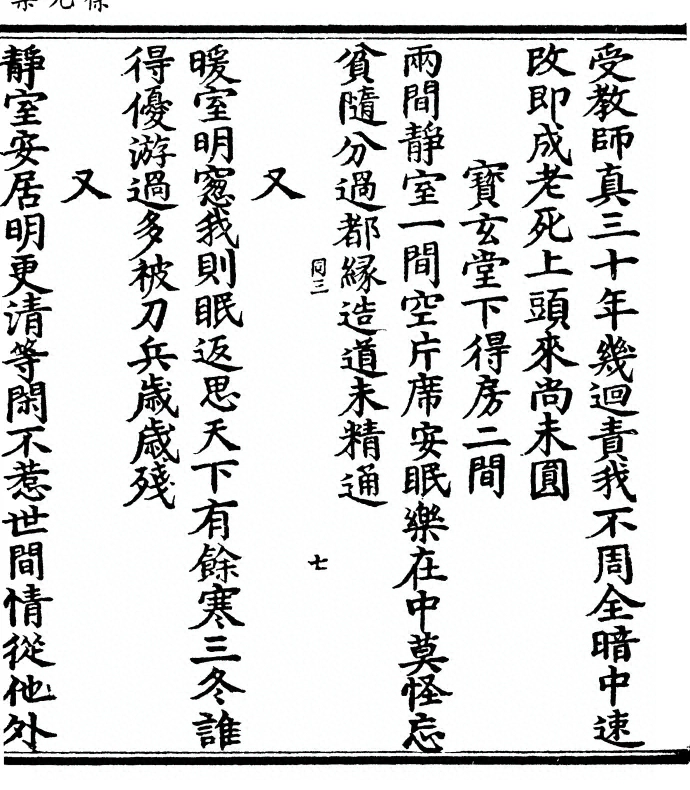 受教師真三十年幾迴責我不周全暗中速
改即成老死上頭來尚未圓
寶玄堂下得房二間
兩間靜室一間空片席安眠樂在中莫怪忘
貧隨分過都緣造道未精通
同三
七
又
暖室明窓我則眠返思天下有餘寒三冬誰
得優游過多被刀兵歲歲殘
又
靜室安居明更清等閑不惹世間情從他外